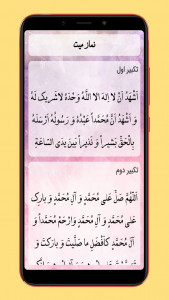 نماز میت
تکبیر اول
اَشْهَدُ اَنْ لا اِلهَ الاَّ اللهُ وَحْدَهُ لاشَریكَ لَهُ وَ
اَشْهَدُ اَنَّ مُحَمَّداً عَبْدُهُ وَ رَسُولُهُ اَرْسَلَهُ
بِالْحَقِّ بَشیراً وَ نَذیراً بَینَ یدَىِ السّاعَةِ
تکبیر دوم
اَللّهُمَّ صَلِّ عَلى مُحَمَّدٍ وَ آلِ مُحَمَّدٍ وَ بارِك
عَلى مُحَمَّدٍ وَ آلِ مُحَمَّدٍ وَارْحَمْ مُحَمَّداً وَ
آلَ مُحَمَّدٍ كَاَفْضَلِ ما صَلَّیتَ وَ بارَكْتَ وَ